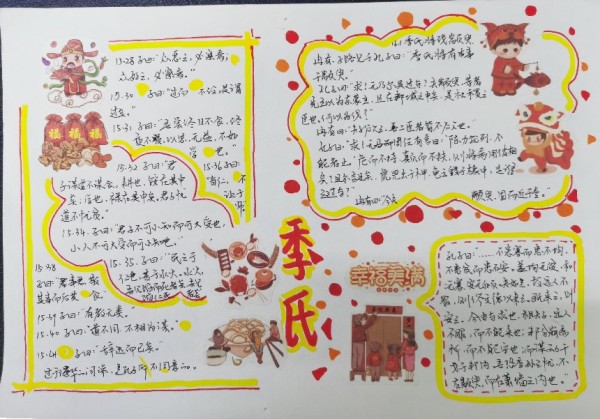 15·28 子曰:"众恶之,必察焉;
众好之,必察焉。"
15·30 子曰:"过而不改,是谓
过矣。"
15·31 子曰:"吾尝终日不食,终
夜不寝,以思,无益,不如
学也。"
15·32 子曰:"君
子谋道不谋食。耕也,馁在其中
矣;学也,禄在其中矣。君子忧
道不忧贫。"
15·34 子曰:"君子不可小知而可大受也,
小人不可大受而可小知也。"
15·35 子曰:"民之于
仁也,甚于水火。水火,
15·36子曰:
"当仁,不
让于
师。"
15·38
子曰:"君事君,敬
其事而后其食。"
15·39 子曰:"有教无类。"
15·40 子曰:"道不同,不相为谋。"
15·41 子曰:"辞达而已矣。"
福 福 福
季氏
16·1 季氏将伐颛臾。
冉有、子路见于孔子曰:"季氏将有事于
颛臾。"
孔子曰:"求!无乃尔是过与?夫颛臾,昔者
先王以为东蒙主,且在邦域之中矣,是社稷之
臣也。何以伐为?"
冉有曰:"夫子欲之,吾二臣者皆不欲也。"
孔子曰:"求!周任有言曰:'陈力就列,不
能者止。'危而不持,颠而不扶,则将焉用彼相
矣?且尔言过矣,虎兕出于柙,龟玉毁于椟中,是谁
之过与?"
冉有曰:"今夫
颛臾,固而近于费。
幸福美满
孔子曰:"……不患寡而患不均,
不患贫而患不安。盖均无贫,和
无寡,安无倾。夫如是,故远人不
服,则修文德以来之。既来之,则
安之。今由与求也,相夫子,远人
不服,而不能来也;邦分崩离
析,而不能守也;而谋动干
戈于邦内。吾恐季孙之忧,不
在颛臾,而在萧墙之内也。"